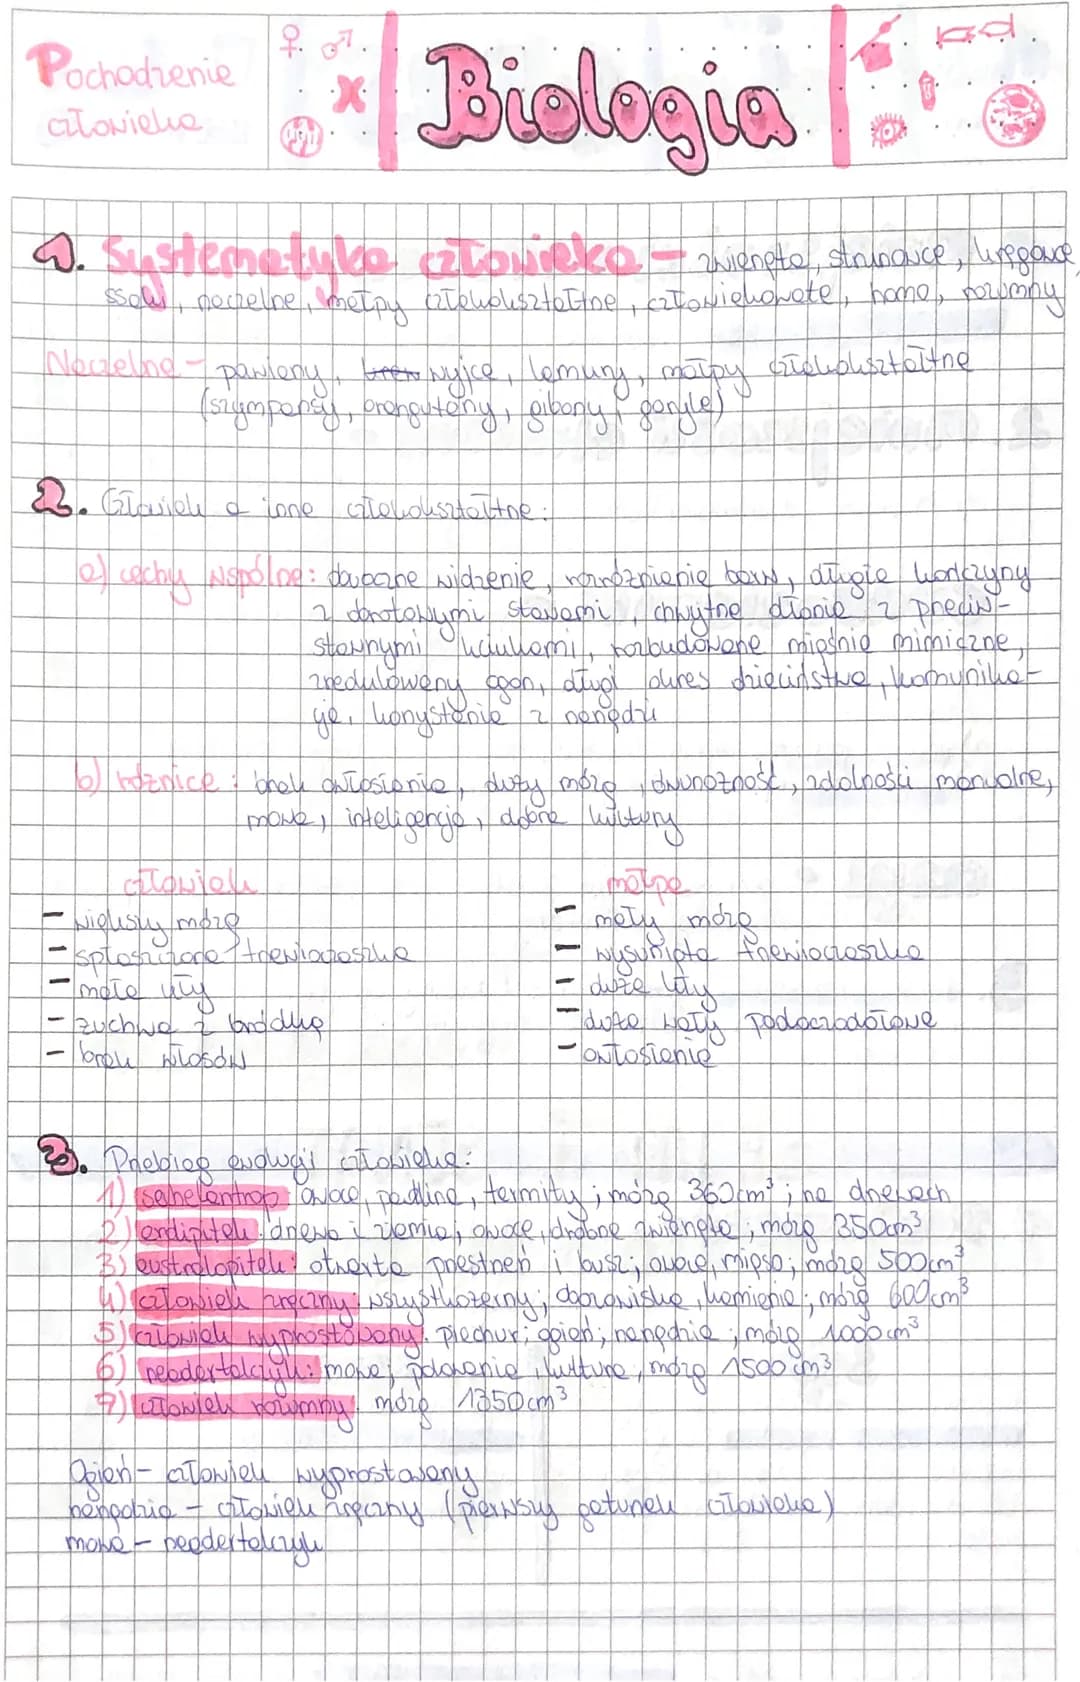 Pochodzenie
człowieka
Biologia
1. Systematyka człowieka - zwierzęta, strunowce, kręgowce,
ssaki, naczelne, małpy człekokształtne, człowiekowate, homo, rozumny
Naczelne - pawiany, wyjce, lemury, małpy człekokształtne
(szympansy, orangutany, gibony, goryle)
2. Człowiek a inne człekokształtne:
a) cechy wspólne: dwuoczne widzenie, rozróżnienie barw, długie kończyny
z obrotowymi stawami, chwytne dłonie z przeciw-
stawnymi kciukami, rozbudowane mięśnie mimiczne,
zredukowany ogon, długi okres dzieciństwa, komunika-
cja, korzystanie z narzędzi
b) różnice: brak owłosienia, duży mózg, dwunożność, zdolności manualne,
mowa, inteligencja, dobra kultury
człowiek
małpa
- większy mózg
- mały mózg
- spłaszczona trzewioczaszka
- wysunięta trzewioczaszka
- małe kły
- duże kły
- żuchwa z bródką
- duże wały podoczodołowe
- brak włosów
- owłosienie
3. Przebieg ewolucji człowieka:
1) sahelantrop: owoce, padlina, termity; mózg 360cm³; na drzewach
2) ardipitek: drzewa i ziemia; owoce, drobne zwierzęta; mózg 350cm³
3) australopitek: otwarta przestrzeń i busz; owoce, mięso; mózg 500cm³
4) człowiek zręczny: wszystkożerny; obozowiska, kamienie; mózg 600cm³
5) człowiek wyprostowany: piechur; ogień; narzędzia; mózg 1000cm³
6) neadertalczyk: mowa; polowania, kultura; mózg 1500cm³
7) człowiek rozumny: mózg 1350cm³
Ogień - człowiek wyprostowany
narzędzia - człowiek zręczny (pierwszy gatunek człowieka)
mowa - neadertalczyk